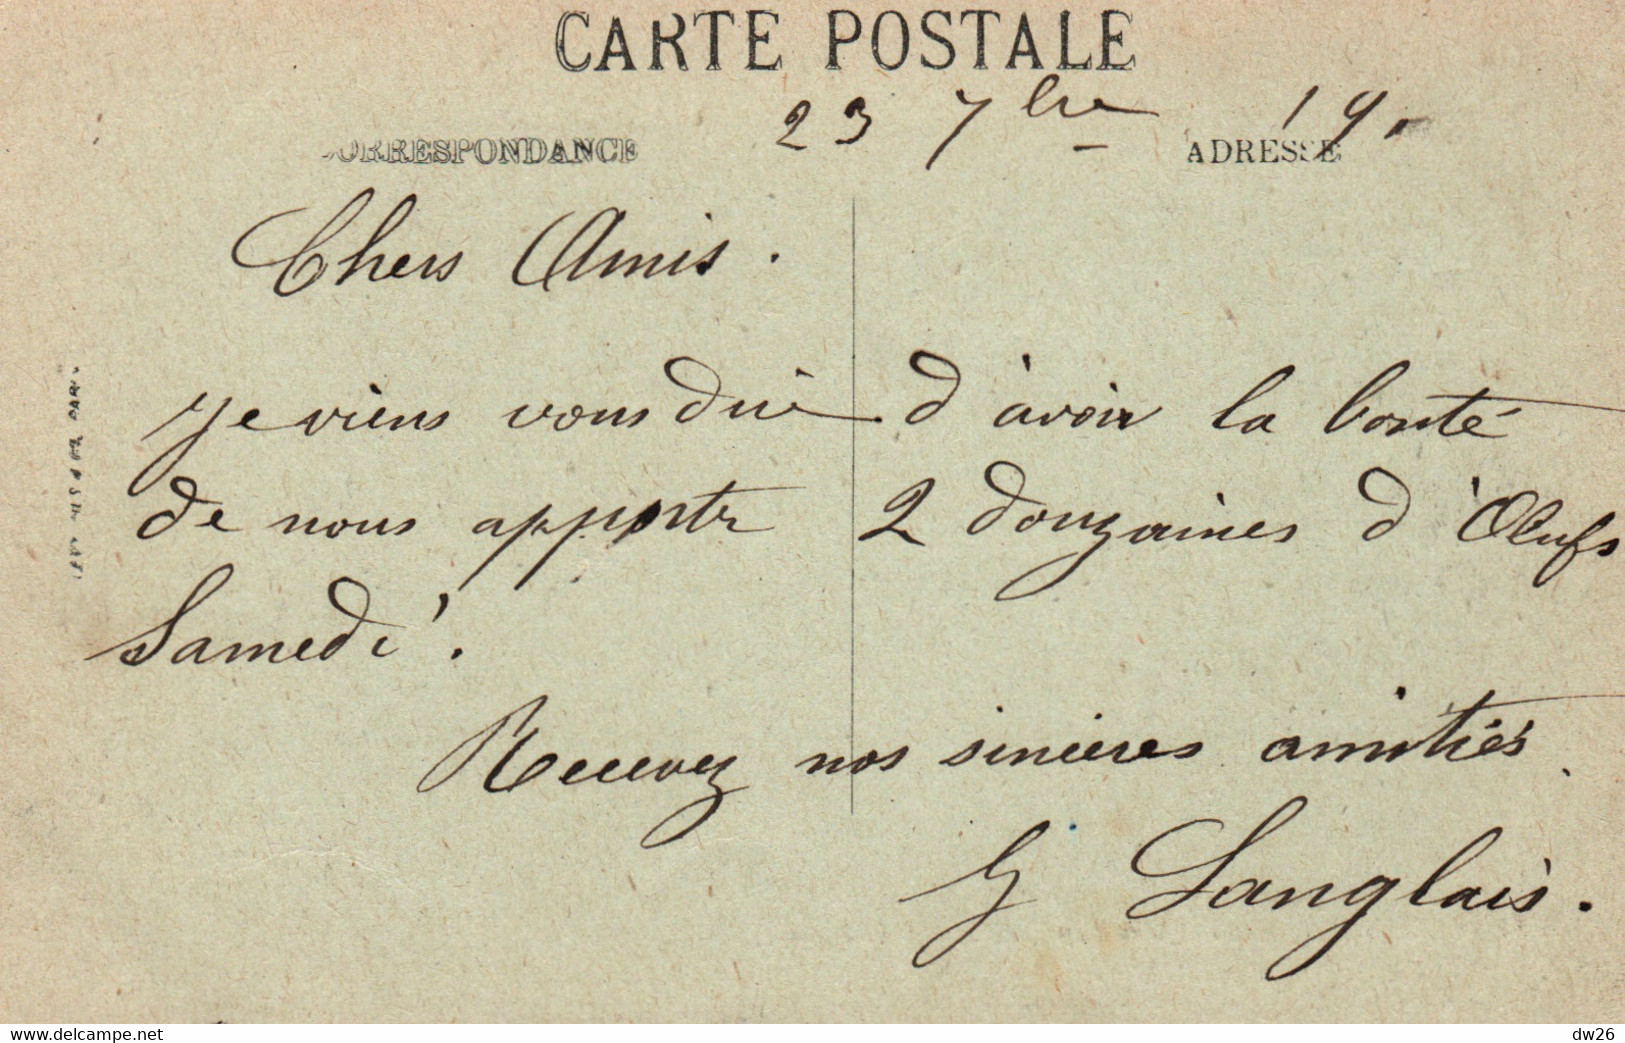 CARTE POSTALE
23 7bre 19
CORRESPONDANCE ADRESSE
Chers Amis.
Je viens vous dire d'avoir la bonté
de nous apporter 2 douzaines d'Œufs
Samedi.
Recevez nos sincères amitiés.
G Langlais.
www.delcampe.net
dw26